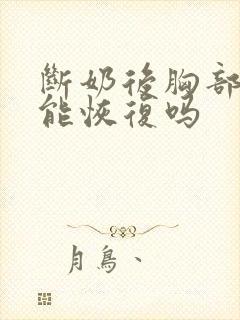 斷奶後胸部
能恢復吗
月鳥、